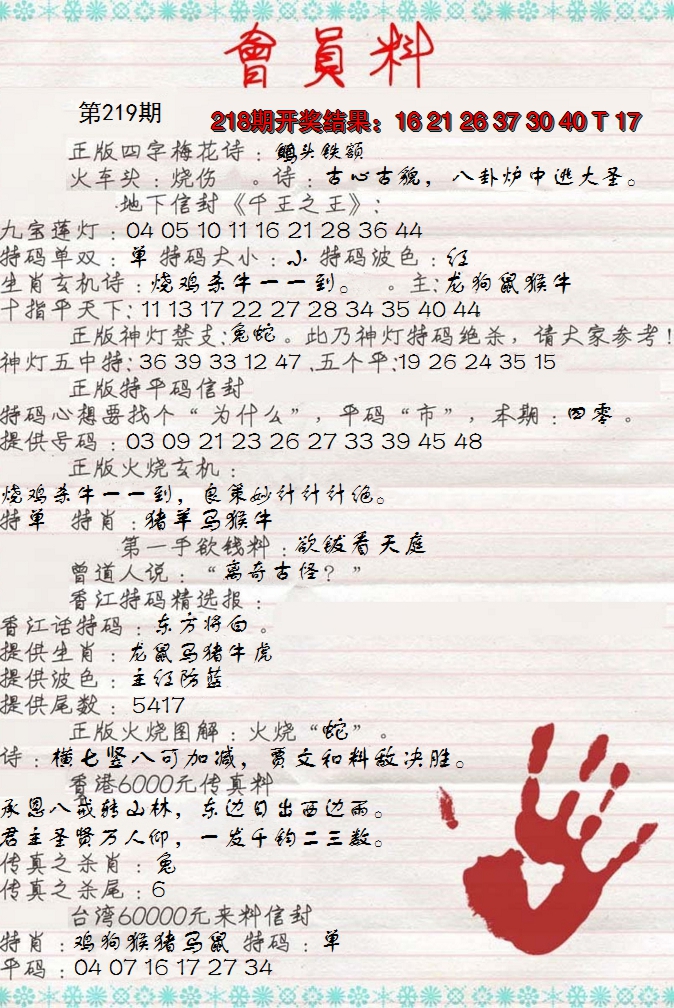 會員料
第219期
218期开奖结果：16 21 26 37 30 40 T 17
正版四字梅花诗：鲷头铁额
火车头：烧伤 。诗：古心古貌，八卦炉中逃大圣。
地下信封《千王之王》：
九宝莲灯：04 05 10 11 16 21 28 36 44
特码单双：单 特码大小：小 特码波色：红
生肖玄机诗：烧鸡杀牛一一到。 。主:龙狗鼠猴牛
十指平天下:11 13 17 22 27 28 34 35 40 44
正版神灯禁支:兔蛇。此乃神灯特码绝杀，请大家参考!
神灯五中特:36 39 33 12 47 .五个平:19 26 24 35 15
正版特平码信封
特码心想要找个“为什么”，平码“市”，本期：四零。
提供号码：03 09 21 23 26 27 33 39 45 48
正版火烧玄机：
烧鸡杀牛一一到，良策妙计计计绝。
特单 特肖：猪羊马猴牛
第一手欲钱料：欲钱看天庭
曾道人说：“离奇古怪？”
香江特码精选报：
香江话特码：东方将白。
提供生肖：龙鼠马猪牛虎
提供波色：主红防蓝
提供尾数：5417
正版火烧图解：火烧“蛇”。
诗：横七竖八可加减，贾文和料敌决胜。
香港6000元传真料
承恩八戒转山林，东边日出西边雨。
君主圣贤万人仰，一发千钧二三数。
传真之杀肖：兔
传真之杀尾：6
台湾60000元来料信封
特肖：鸡狗猴猪马鼠 特码：单
平码：04 07 16 17 27 34